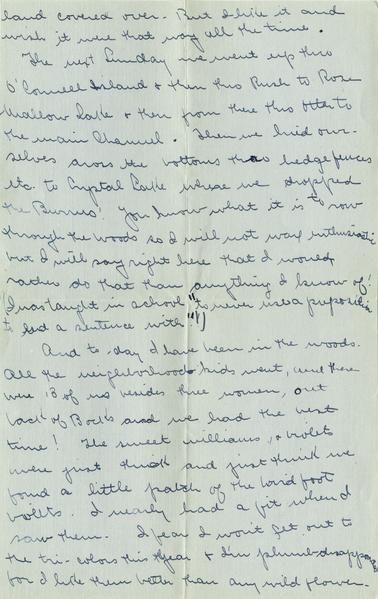 land covered over. But I like it and
wish it were that way all the time.
The next Sunday we went up thro
O'Connell Island & then thro Rush to Rose
Mallow Lake & then from there thro Otter to
the main Channel. Then we hied our-
selves aross the bottoms thro hedge fences
etc. to Crystal Lake where we dropped
the Burrus'. You know what it is to row
through the woods so I will not wax enthusiastic
but I will say right here that I would
rather do that than anything I know of!
(I was taught in school "to never use a preposition
to end a sentence with"!)
And to-day I have been in the woods.
All the neighborhood kids went, and there
were 13 of us besides three women, out
back of Bock's and we had the best
time! The sweet williams, & violets
were just thick and just think we
found a little patch of the bird foot
violets. I nearly had a fit when I
saw them. I fear I won't get out to
the tri-colors this year & I'm plumb disappointed
for I like them better than any wild flower.